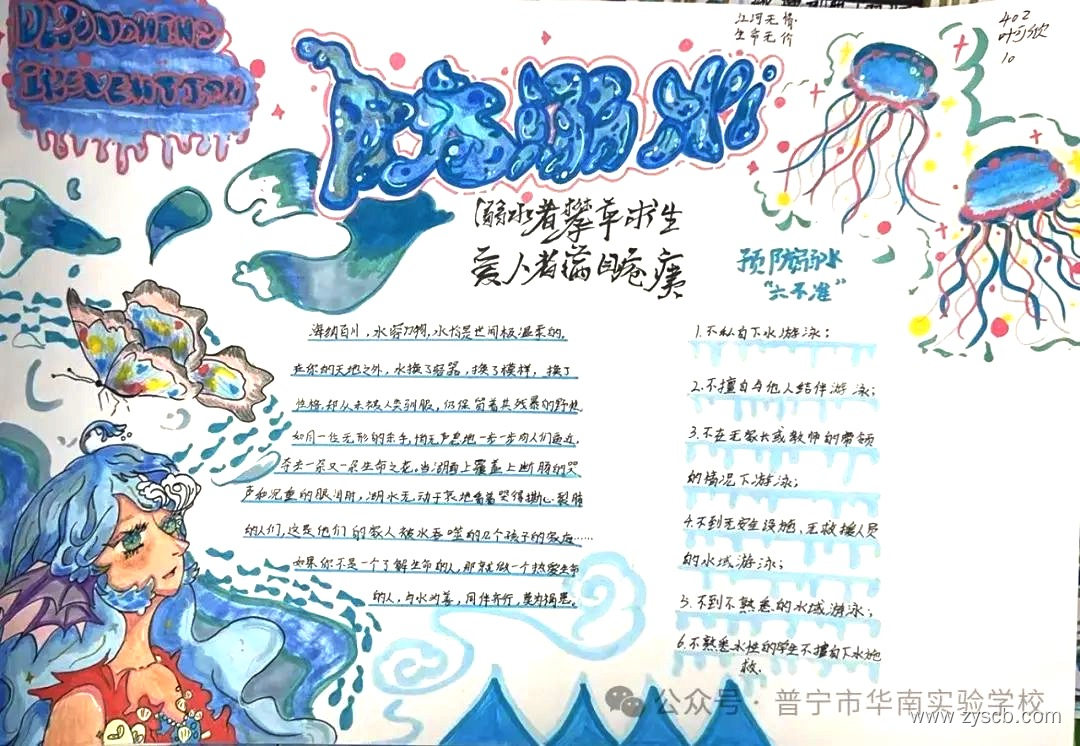 DROWNING
PREVENTION
防溺水!
江河无情
生命无价
402
叶可欣
10
溺水者攀草求生
爱人者满目疮痍
预防溺水
“六不准”
海纳百川，水容万物，水恰是世间极温柔的。
在你的天地之外，水换了容器，换了模样，换了
性格，却从未被人类驯服，仍保留着其残暴的野性
如同一位无形的杀手，悄无声息地一步一步向人们逼近，
夺去一朵又一朵生命之花。当湖面上覆盖上断肠的哭
声和沉重的眼泪时，湖水无动于衷地看着哭得撕心裂肺
的人们，这是他们的家人被水吞噬的几个孩子的家庭……
如果你不是一个了解生命的人，那就做一个热爱生命
的人，与水为善，同伴齐行，莫为祸患。
1.不私自下水游泳；
2.不擅自与他人结伴游泳；
3.不在无家长或教师的带领
的情况下游泳；
4.不到无安全设施、无救援人员
的水域游泳；
5.不到不熟悉的水域游泳；
6.不熟悉水性的学生不擅自下水施
救.
公众号·普宁市华南实验学校
www.zyscb.com